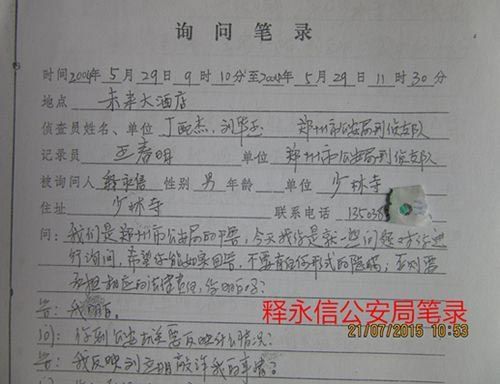 询问笔录
时间2004年5月29日9时10分至2004年5月29日11时30分
地点 未来大酒店
侦查员姓名、单位 丁 杰、刘华玉 郑州市公安局刑侦支队
记录员 王春明 单位 郑州市公安局刑侦支队
被询问人 释永信 性别 男 年龄 单位 少林寺
住址 少林寺 联系电话 13503
问:我们是郑州市公安局的干警,今天找你是就一些问题对你进
行询问,希望你能如实回答,不要有任何形式的隐瞒,否则要
承担相应的法律责任,你明白吗?
答:我明白。
问:你到公安机关要反映什么情况?
答:我反映刘立明敲诈我的事情?
释永信公安局笔录
21/07/2015 10:53